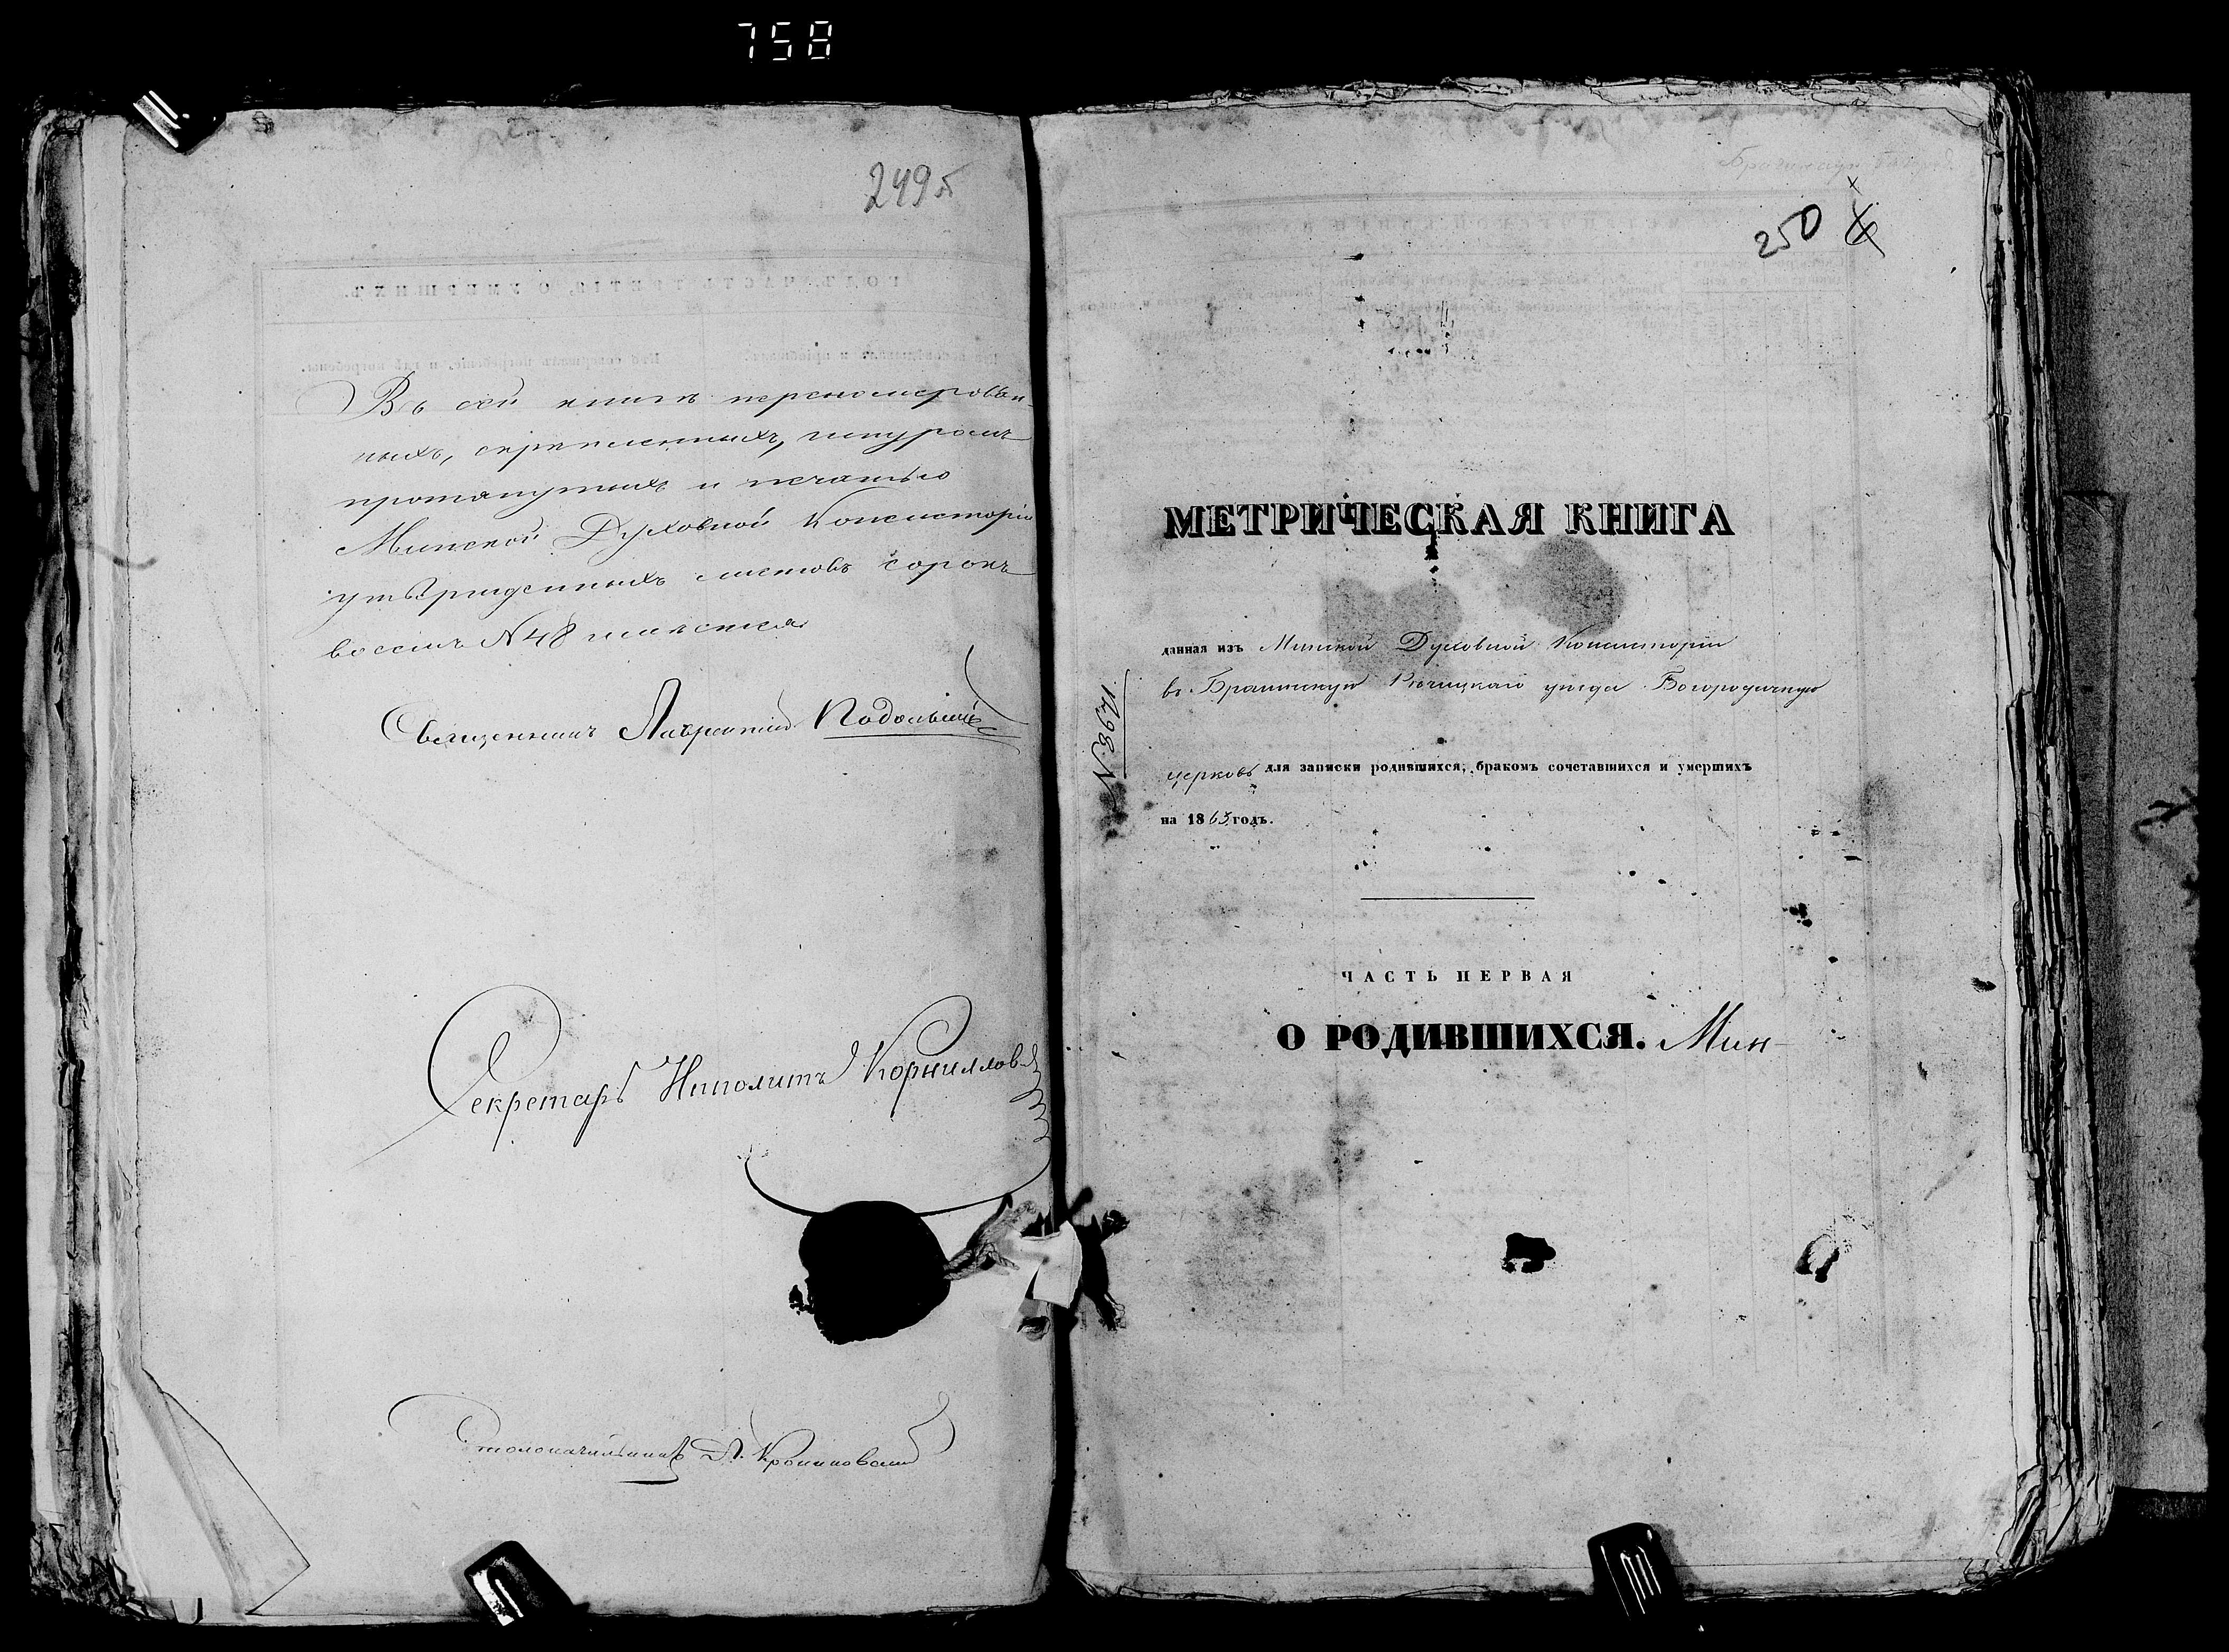 758
249 об
Въ сей книгѣ переномерован-
ныхъ, скрѣпленныхъ, шнуромъ
протянутыхъ и печатью
Минской Духовной Консисторіи
утвержденныхъ листовъ сорокъ
восемь N 48
Священникъ Лаврентій
Секретарь Иполитъ Корниллов
Столоначальникъ
250
МЕТРИЧЕСКАЯ КНИГА
данная изъ Минской Духовной Консисторіи
въ Брагинскую Рѣчицкаго уѣзда Богородичную
церковь для записки родившихся, бракомъ сочетавшихся и умершихъ
на 1865 годъ.
ЧАСТЬ ПЕРВАЯ
О РОДИВШИХСЯ. Мин-